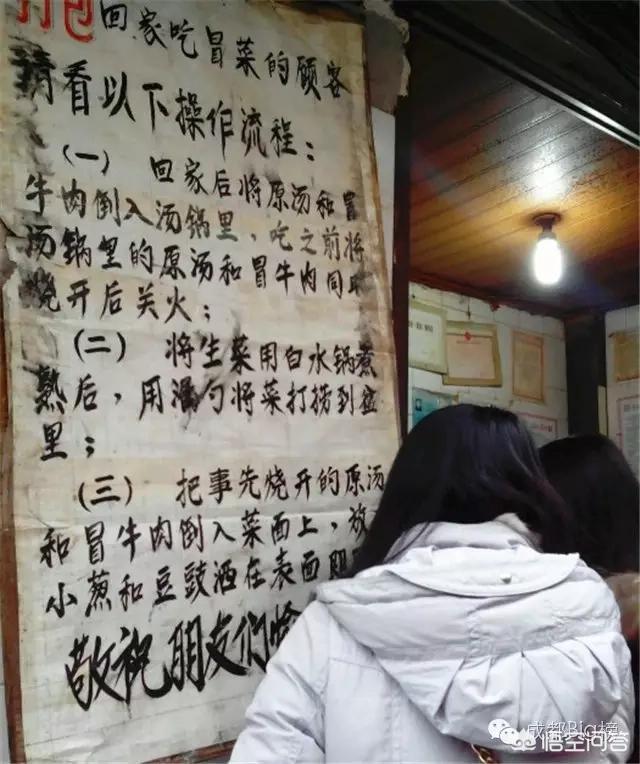 打包回家吃冒菜的顾客
请看以下操作流程：
(一) 回家后将原汤和冒
牛肉倒入汤锅里，吃之前将
汤锅里的原汤和冒牛肉同时
烧开后关火；
(二) 将生菜用白水锅煮
熟后，用漏勺将菜打捞到盆
里；
(三) 把事先烧开的原汤
和冒牛肉倒入菜面上，放
小葱和豆豉洒在表面即
敬祝朋友们
成都Big榜
悟空问答